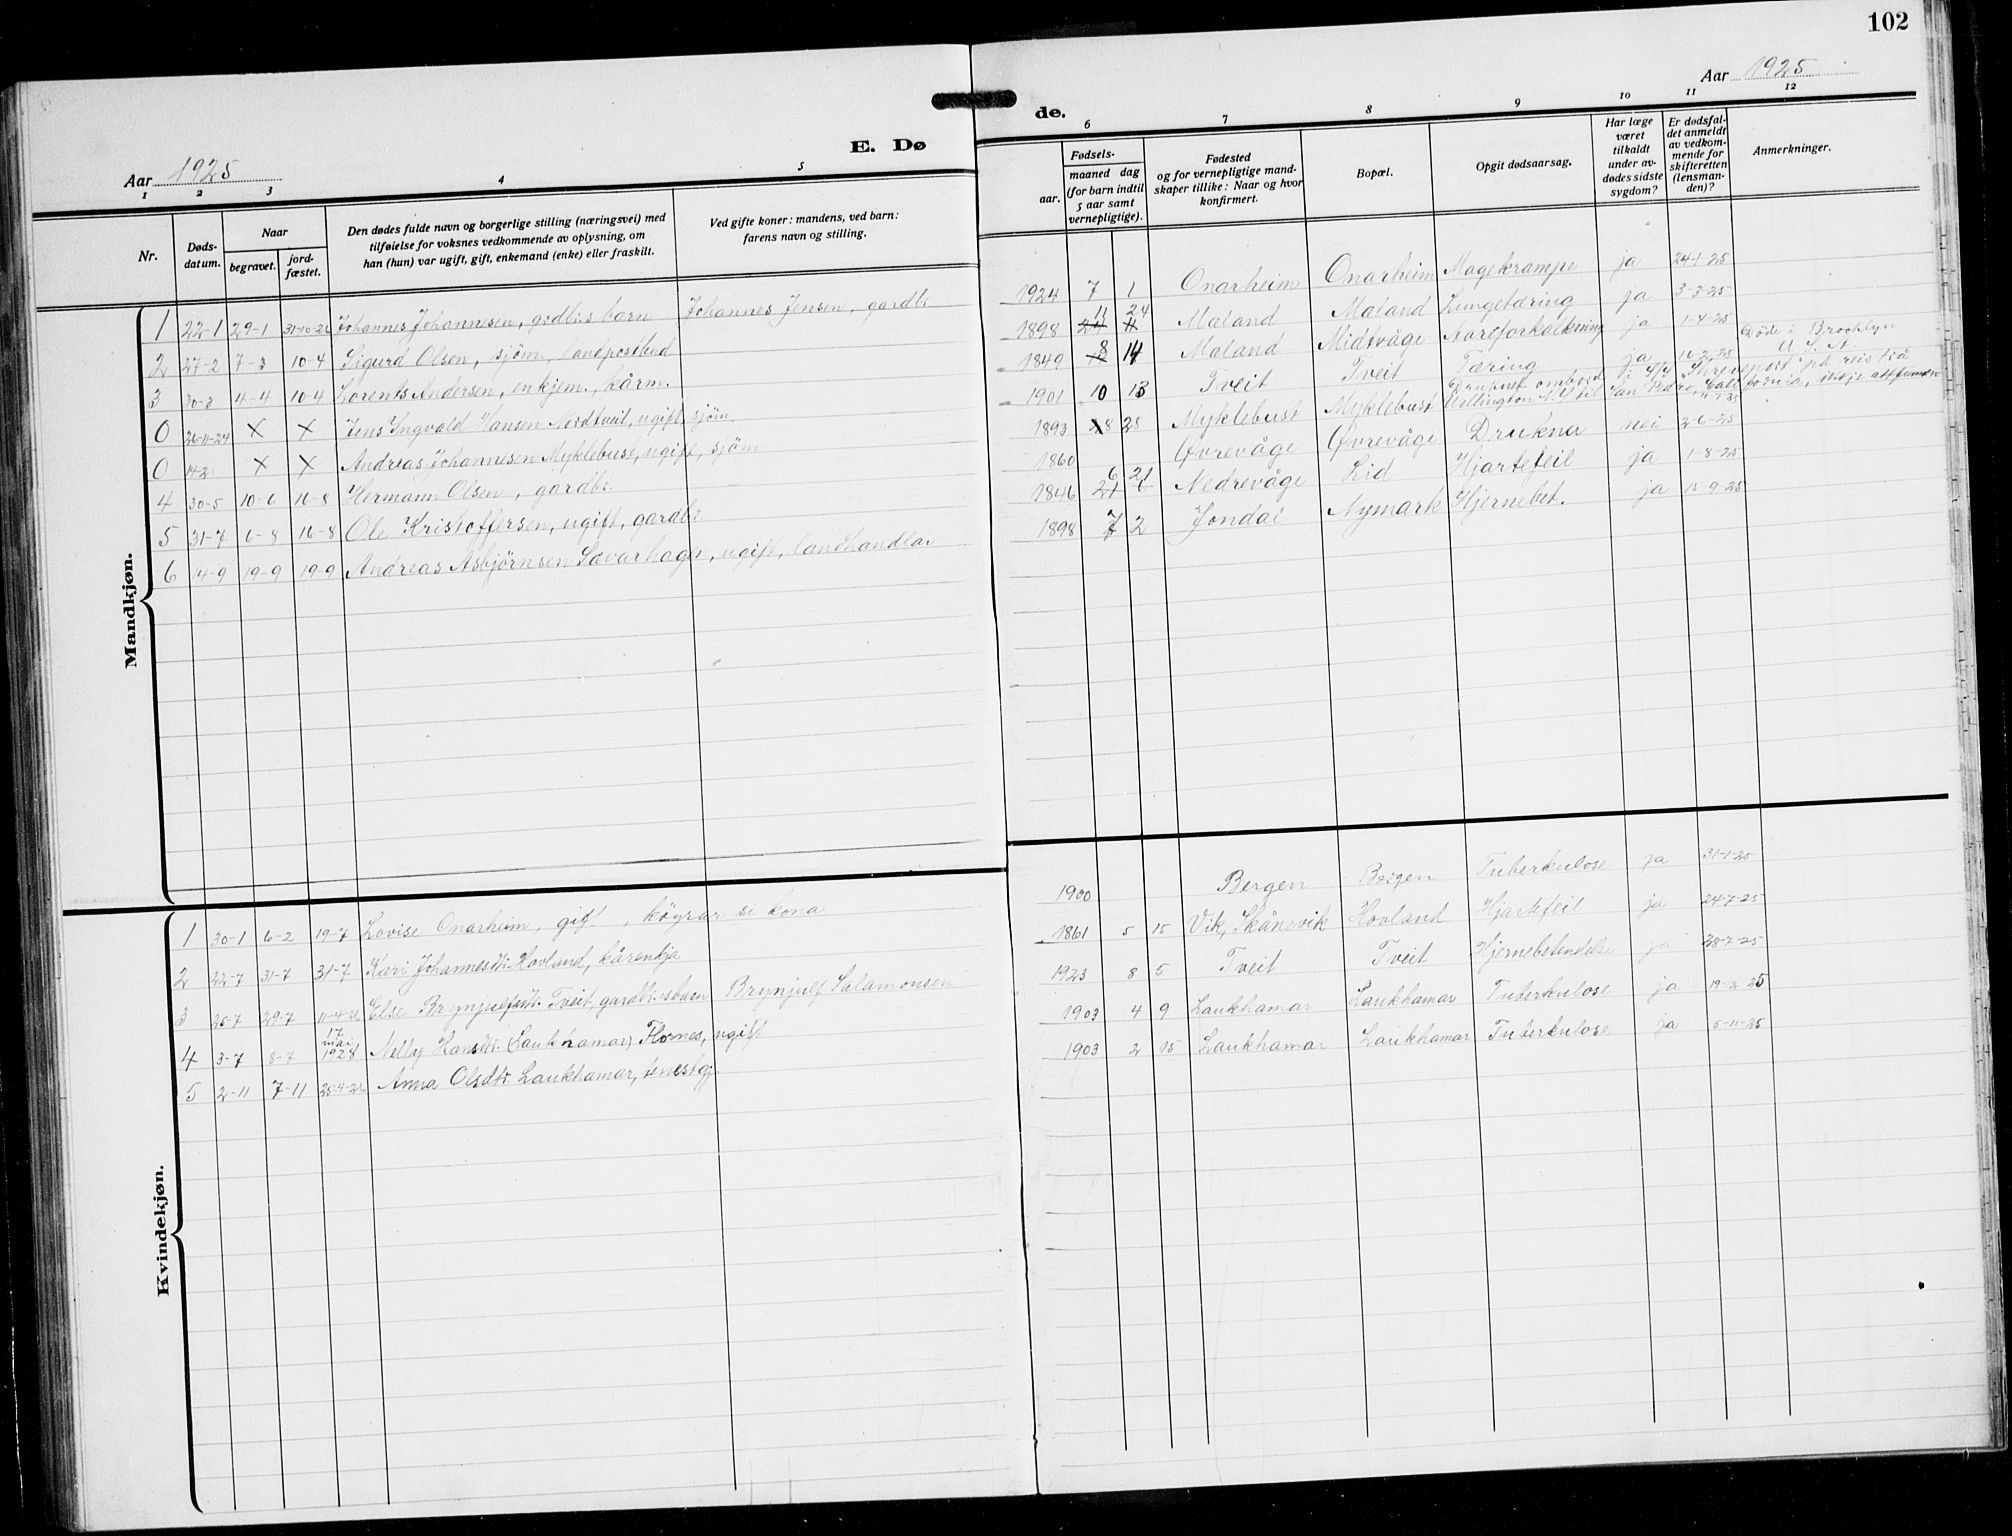 102
Aar 1925
E. Dø
1 2 3 4 5
Nr.
Døds-
datum.
Naar
begravet.
jord-
fæstet.
Den dødes fulde navn og borgerlige stilling (næringsvei) med
tilføielse for voksnes vedkommende av oplysning, om
han (hun) var ugift, gift, enkemand (enke) eller fraskilt.
Ved gifte koner: mandens, ved barn:
farens navn og stilling.
Mandkjøn.
1 22-1 29-1 31-10-26 Johannes Johannesen, gardbr.s barn Johannes Jensen, gardbr
2 27-2 7-3 10-4 Sigurd Olsen, sjöm., landpostbud
3 30-3 4-4 10-4 Lorents Andersen, enkjem., kårm.
0 26-11-24 X X Jens Ingvald Hansen Nordtveit, ugift, sjöm
0 14-2 X X Andreas Johannesen Myklebust, ugift, sjöm
4 30-5 10-6 16-8 Hermann Olsen, gardbr.
5 31-7 6-8 16-8 Ole Kristoffersen, ugift, gardbr
6 14-9 19-9 19-9 Andreas Asbjörnsen Sævarhagen, ugift, landhandlar
Kvindekjøn.
1 30-1 6-2 19-7 Lovise Onarheim, gift, köyrar si kona
2 22-7 31-7 31-7 Kari Johannesdtr. Hovland, kårenkja
3 25-7 29-7 11-4-26 Else Brynjulfsdtr. Tveit, gardbr.s barn Brynjulf Salamonsen
4 3-7 8-7 17 mai 1928 Nelly Hansdtr. (Laukhamar) Flornes, ugift
5 2-11 7-11 25-4-26 Anna Olsdtr. Laukhamar, tenestgj.
de.
Aar 1925
6 7 8 9 10 11 12
Fødsels-
aar.
maaned dag
(for barn indtil
5 aar samt
vernepligtige).
Fødested
og for vernepligtige mand-
skaper tillike: Naar og hvor
konfirmert.
Bopæl.
Opgit dødsaarsag.
Har læge
været
tilkaldt
under av-
dødes sidste
sygdom?
Er dødsfal-
det anmeldt
av vedkom-
mende for
skifteretten
(lensman-
den)?
Anmerkninger.
1924 7 1 Onarheim Onarheim Magekrampe ja 24-1-25
1898 11 24 Maland Maland Lungetæring ja 3-3-25
1849 8 14 Maland Midtvåge Aareforkalkning ja 1-4-25
1901 10 13 Tveit Tveit Tæring ja Döde i Brooklyn U. S. A.
1893 8 28 Myklebust Myklebust Druknet ombord i S/S "Shreveport" på reis frå Wellington N. Z. til San Pedro, California
1860 Øvrevåge Øvrevåge Drukna nei 2-6-25
1846 6 21 Nedrevåge Lid Hjartefeil ja 1-8-25
1898 7 2 Jondal Nymark Hjernebet. ja 15-9-25
1900 Bergen Bergen Tuberkulose ja 31-1-25
1861 5 15 Vik, Skånevik Hovland Hjartefeil ja 24-7-25
1923 8 5 Tveit Tveit Hjernebetendelse ja 28-7-25
1903 4 9 Laukhamar Laukhamar Tuberkulose ja 19-12-25
1903 2 15 Laukhamar Laukhamar Tuberkulose ja 5-11-25